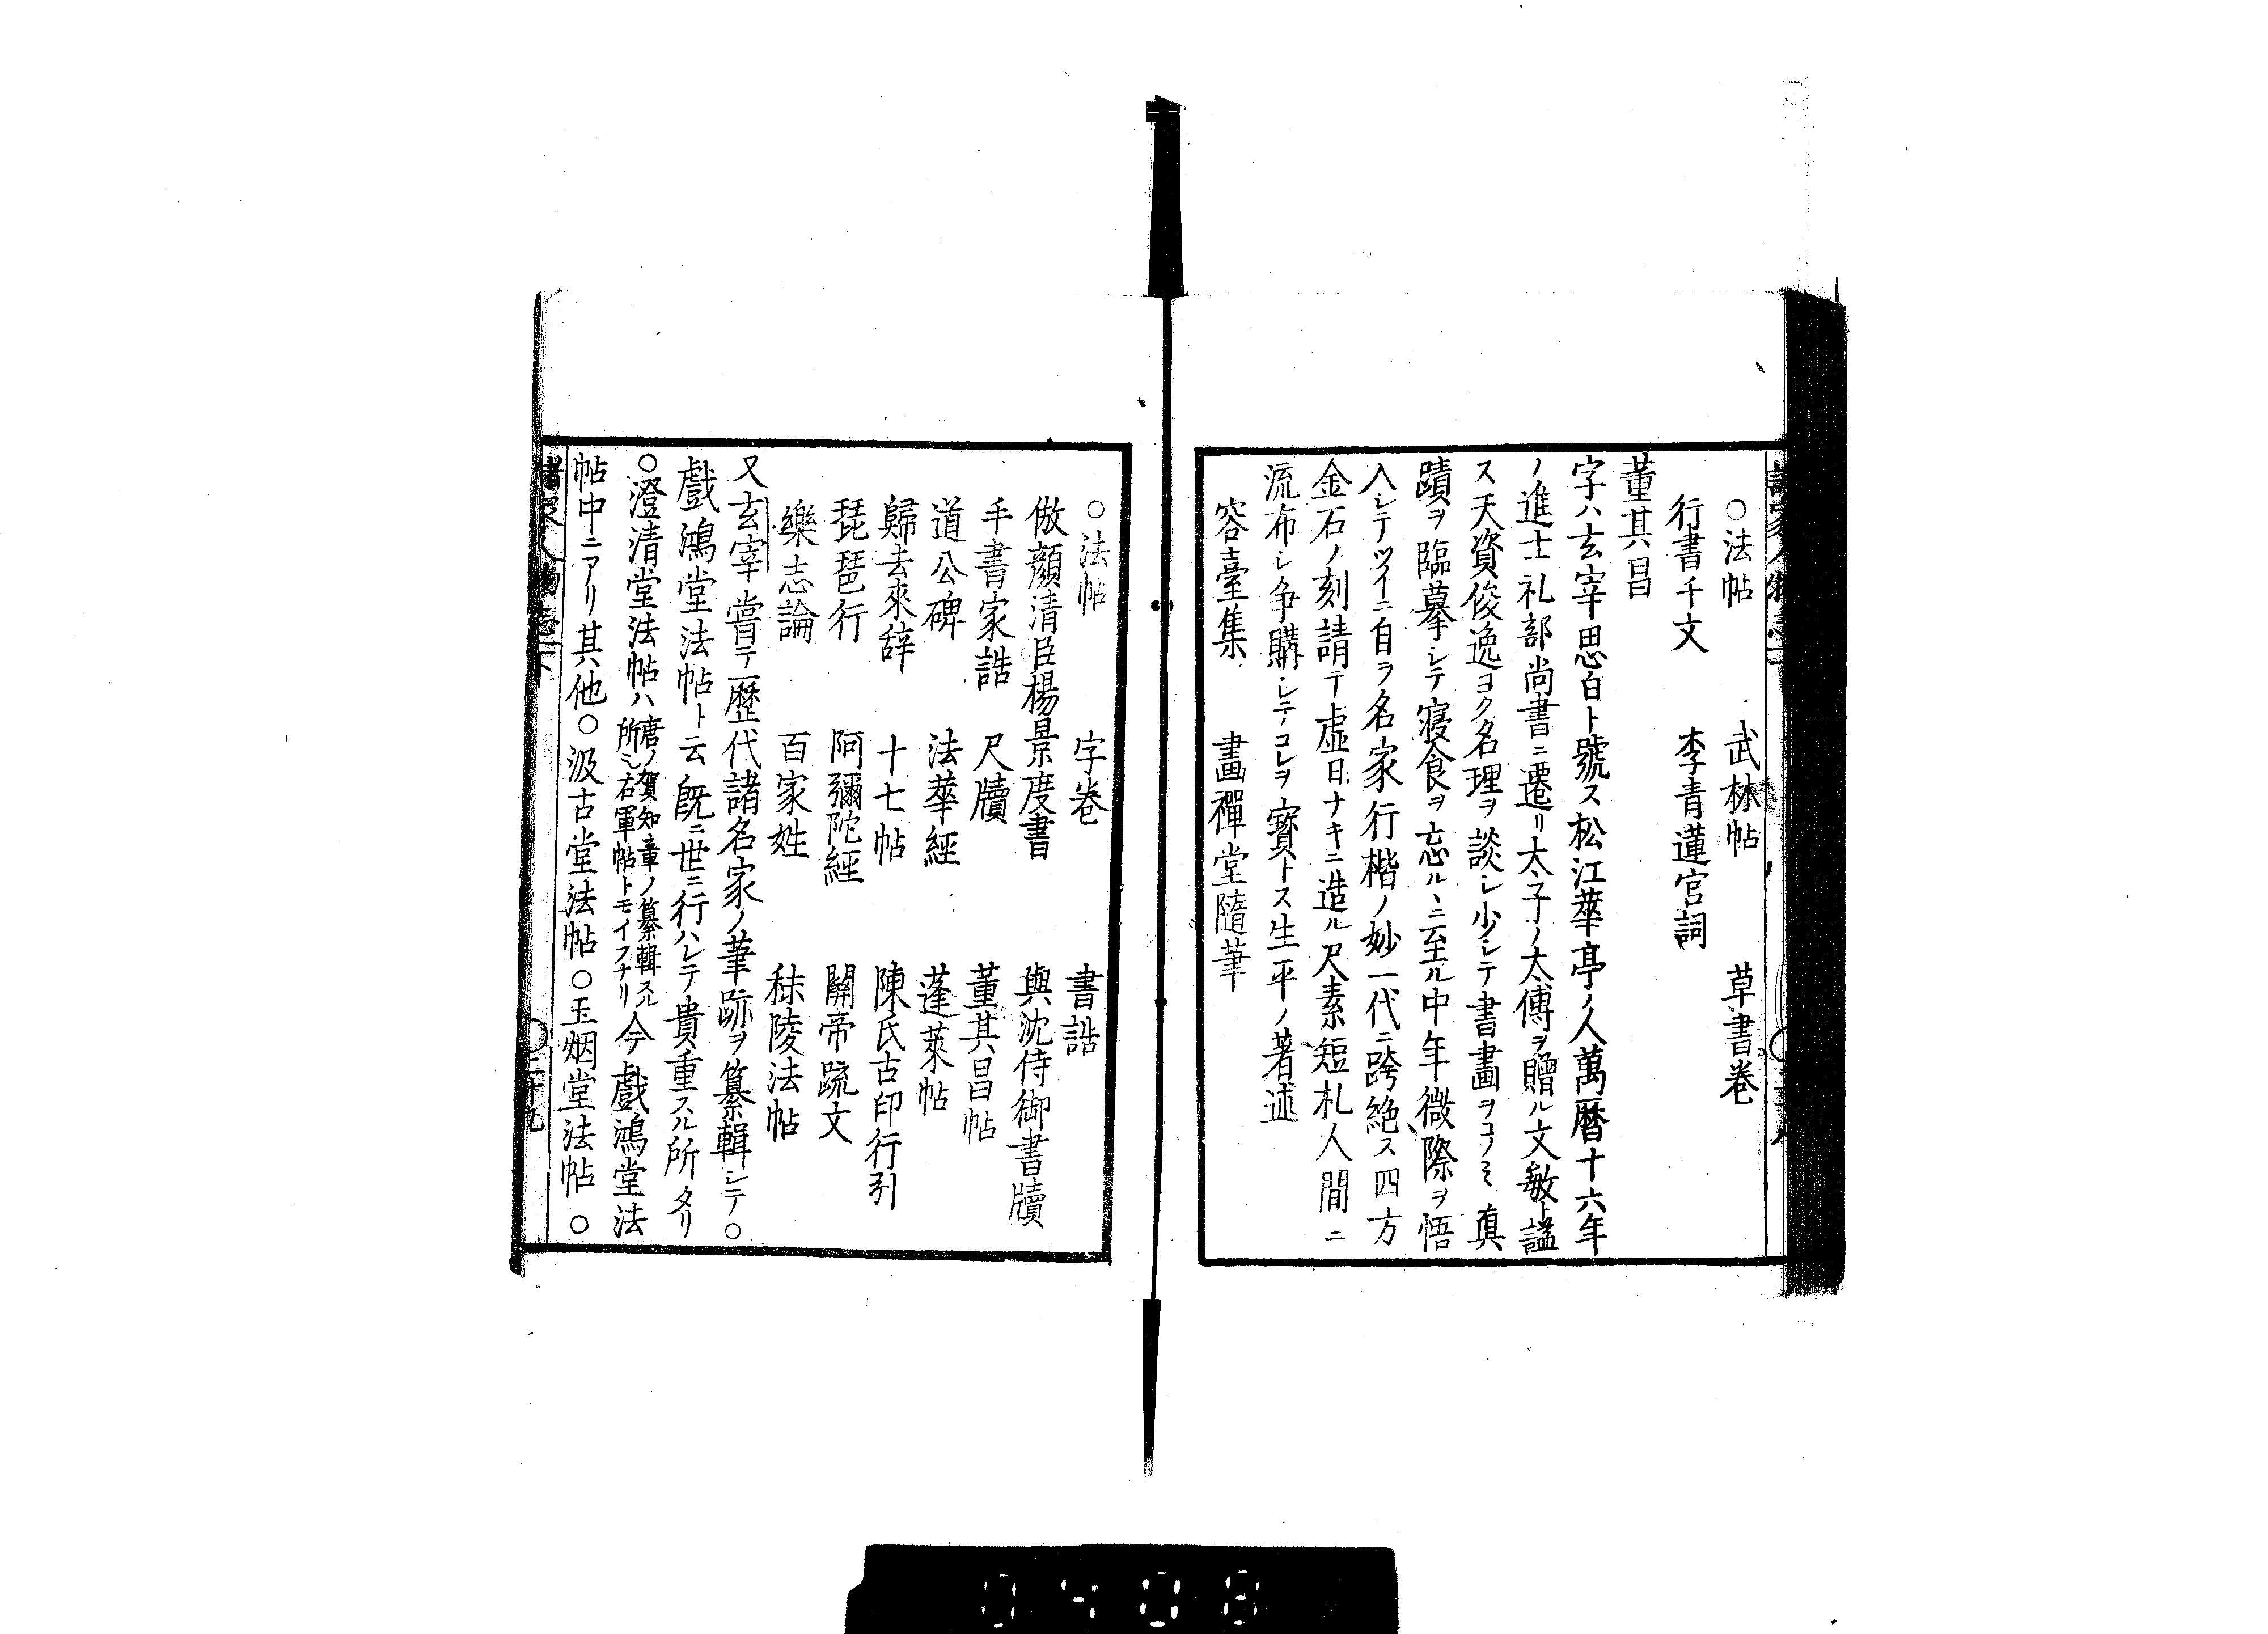 ○法帖　武林帖　草書巻
行書千文　李青蓮宮詞
董其昌
字ハ玄宰思白ト號ス松江華亭ノ人萬暦十六年
ノ進士礼部尚書ニ遷リ太子ノ太傅ヲ贈ル文敏ト謚
ス天資俊逸ヨク名理ヲ談シ少シテ書畫ヲコノミ真
蹟ヲ臨摹シテ寝食ヲ忘ルヽニ至ル中年微際ヲ悟
入シテツイニ自ラ名家行楷ノ妙一代ニ跨絶ス四方
金石ノ刻請テ虚日ナキニ造ル尺素短札人間ニ
流布シ争購シテコレヲ寳トス生平ノ著述
容臺集　畫禪堂隨筆
○法帖　字巻　書誥
倣顔清臣楊景度書　與沈侍御書牘
手書家誥　尺牘　董其昌帖
道公碑　法華經　蓬萊帖
歸去來辞　十七帖　陳氏古印行引
琵琶行　阿彌陀經　關帝疏文
樂志論　百家姓　秣陵法帖
又玄宰嘗テ歷代諸名家ノ筆跡ヲ纂輯シテ○
戲鴻堂法帖ト云既ニ世ニ行ハレテ貴重スル所タリ
○澄清堂法帖ハ唐ノ賀知章ノ纂輯スル所右軍帖トモイフナリ今戲鴻堂法
帖中ニアリ其他○汲古堂法帖○玉烟堂法帖○
諸家人物志下　○二十九